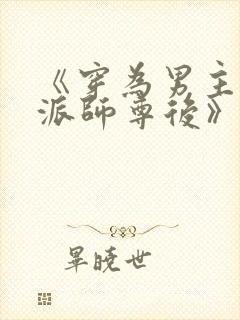 《穿為男主
派師尊後》
畢曉世